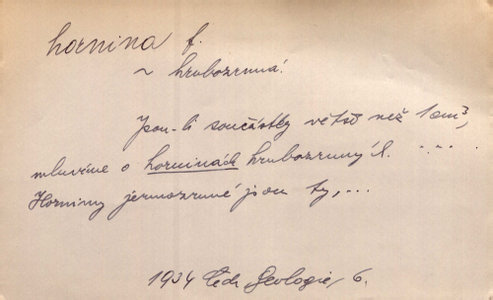 hornina f.
~ hrubozrnná.
Jsou-li součástky větší než 1 cm³,
mluvíme o horninách hrubozrnných. ....
Horniny jemnozrnné jsou ty,...
1934 Geologie, 6.